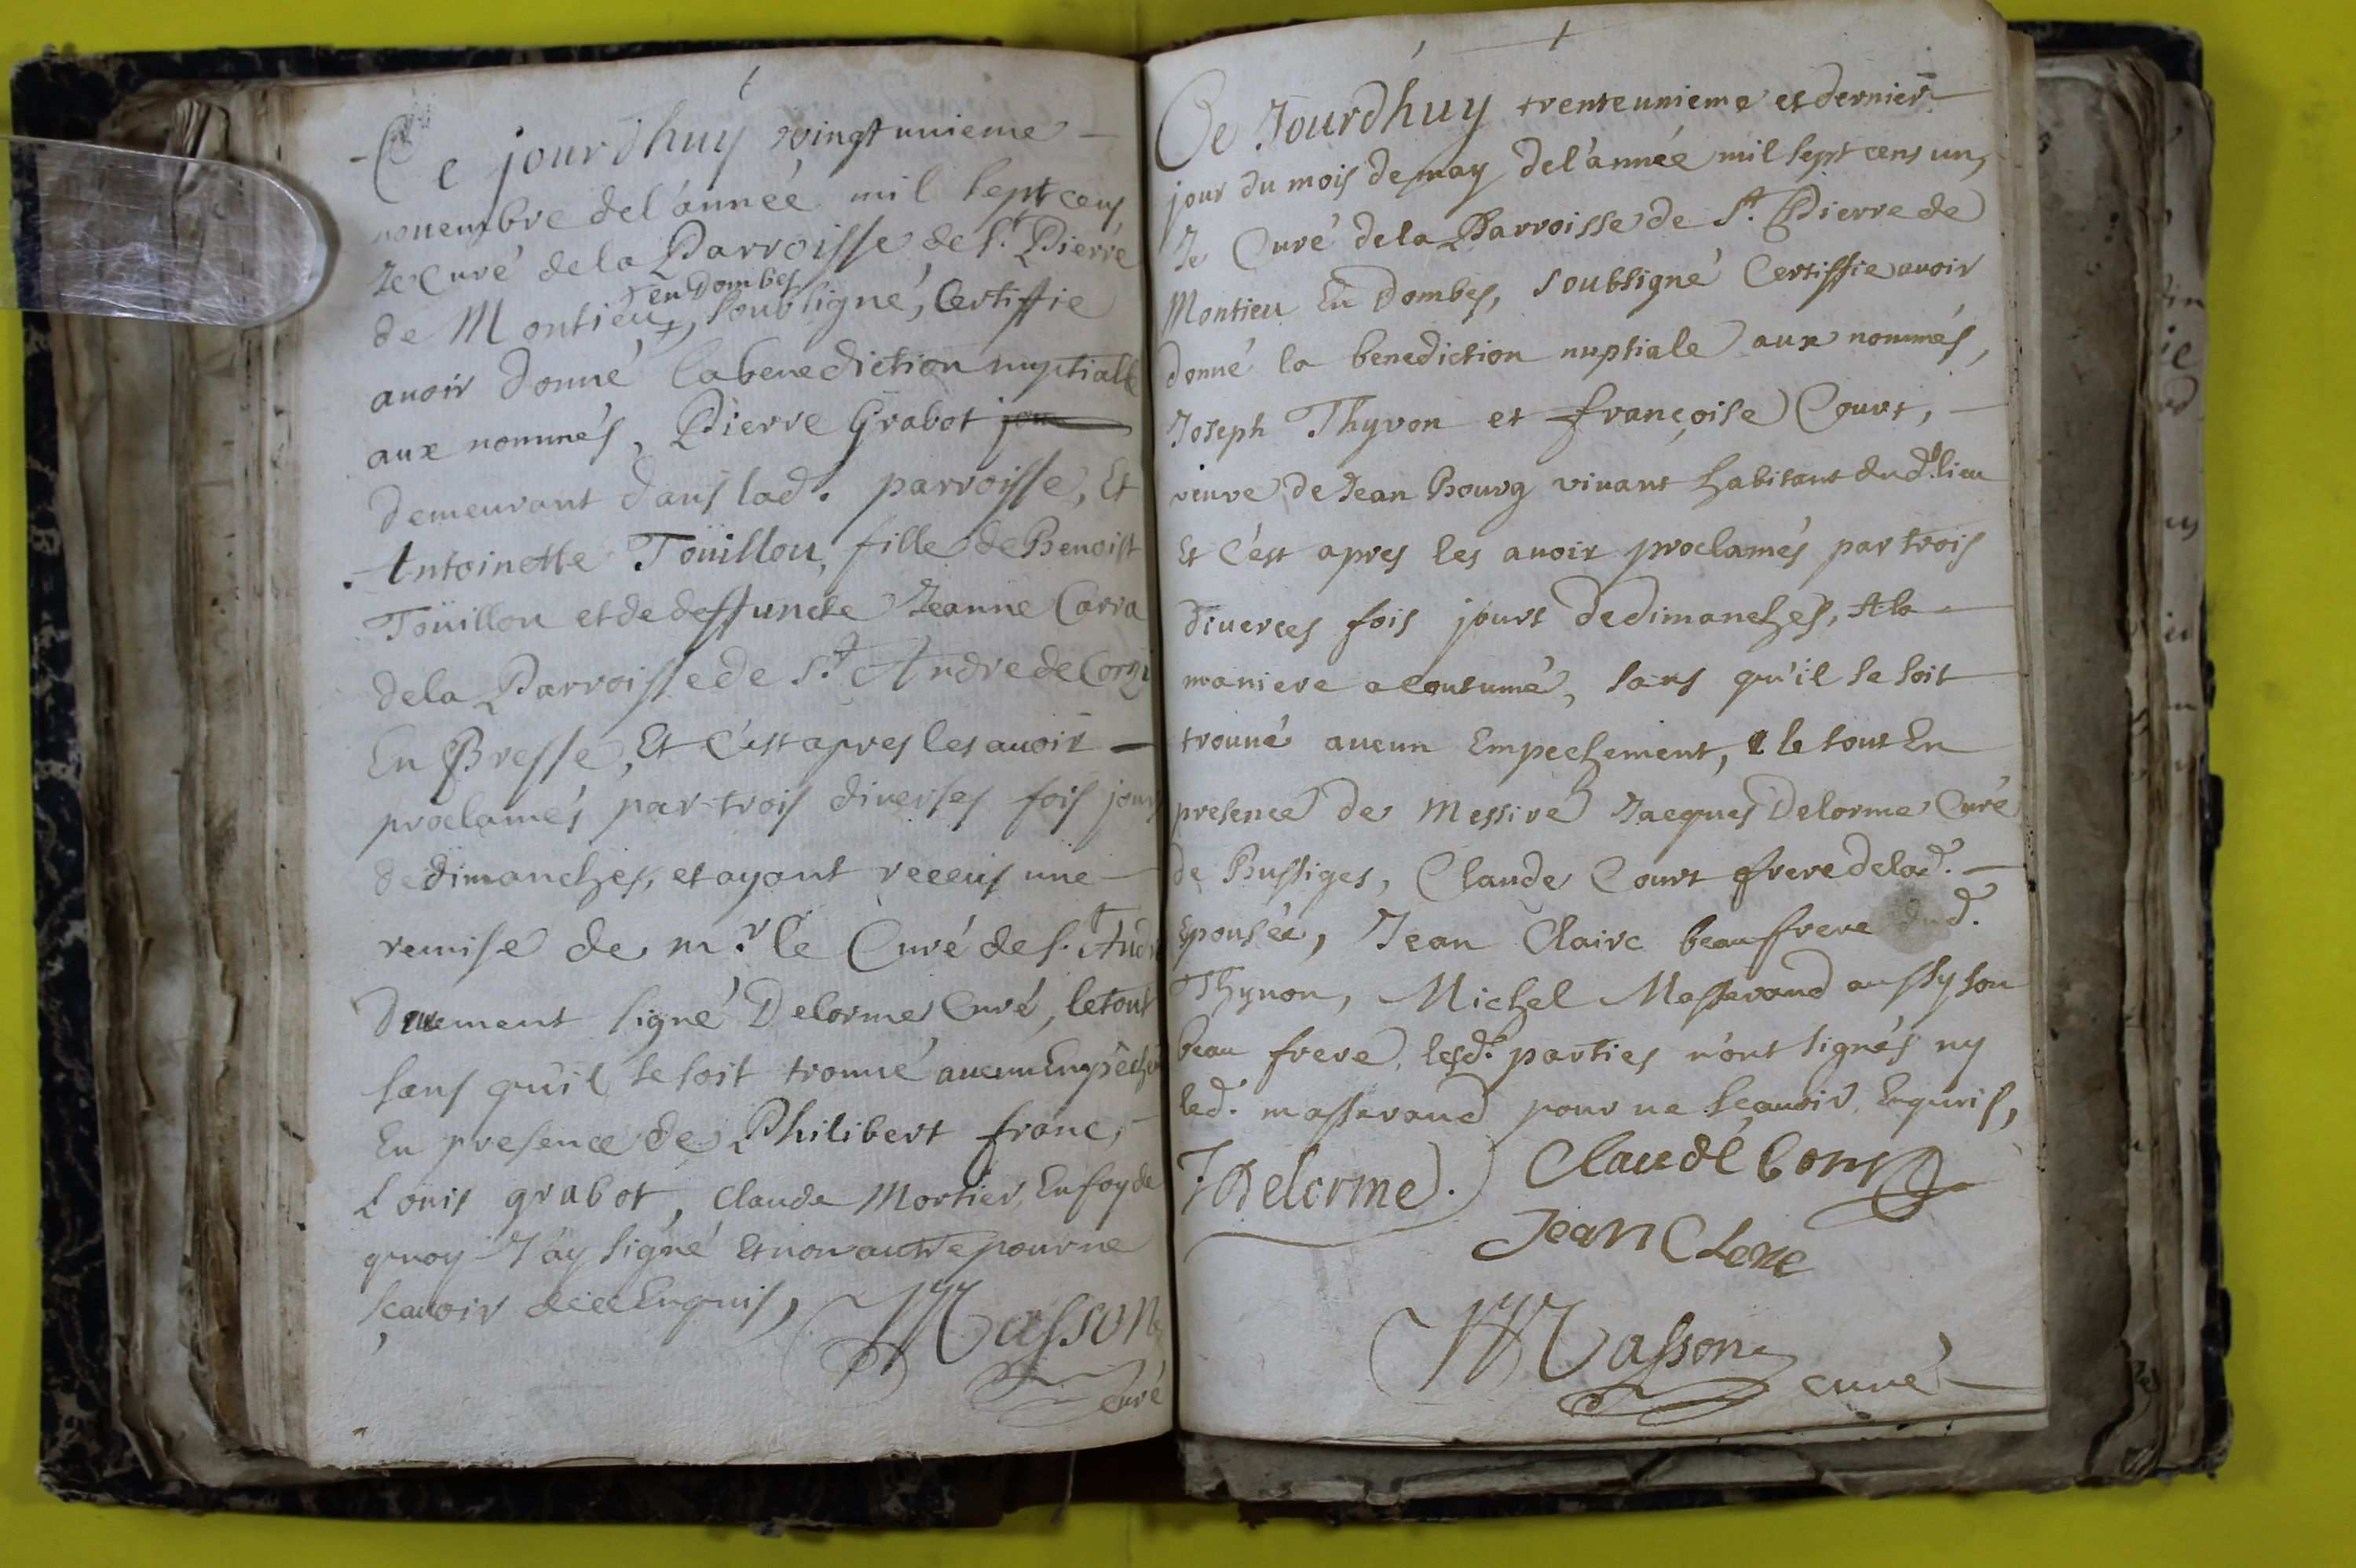 Ce jourdhuy vingt unieme
nouembre del'année mil sept cens
Je Curé dela Parroisse de St. Pierre
en Dombes
de Montieu, soubsigné, Certiffie
auoir donné la benediction nuptialle
aux nommés, Pierre Grabot
demeurant dans lad. parroisse, Et
Antoinette Toüillon, fille de Benoist
Toüillon et de deffuncte Jeanne Carra
dela Parroisse de St. Andre de Corzi
En Bresse, Et C'est apres les auoir
proclamés par trois diverses fois jours
de dimanches, et ayant reeeus une
remise de mr. le Curé de St. André
duement signé Delorme Curé, le tout
sans qu'il se soit trouué aucun Empeche
En presence de Philibert franc,
Louis grabot, Claude Mortier, En foy de
quoy J'ay signé et non autre pour ne
sçauoir Enquis,
Masson
curé
Ce Jourdhuy trente unieme et dernier
jour du mois de may del'année mil sept cens un,
Je Curé dela Parroisse de St. Pierre de
Montieu En Dombes, soubsigné Certiffie auoir
donné la benediction nuptiale aux nommés,
Joseph Thyvon et françoise Court,
veuve de Jean Bourg vivant habitant dud. lieu
Et C'est apres les auoir proclamés par trois
diverces fois jours de dimanches, A la
maniere acoutumé, sans qu'il se soit
trouué aucun Empechement, le tout En
presence de Messire Jacques Delorme Curé
de Bussiges, Claude Court frere de lad.
Epousée, Jean Claire beaufrere dud.
Thyuon, Michel Masserand aussy son
beau frere, lesd. parties n'ont signés ny
led. masserand pour ne sçauoir Enquris,
J Delorme. Claude Cort
Jean Clere
Masson
curé